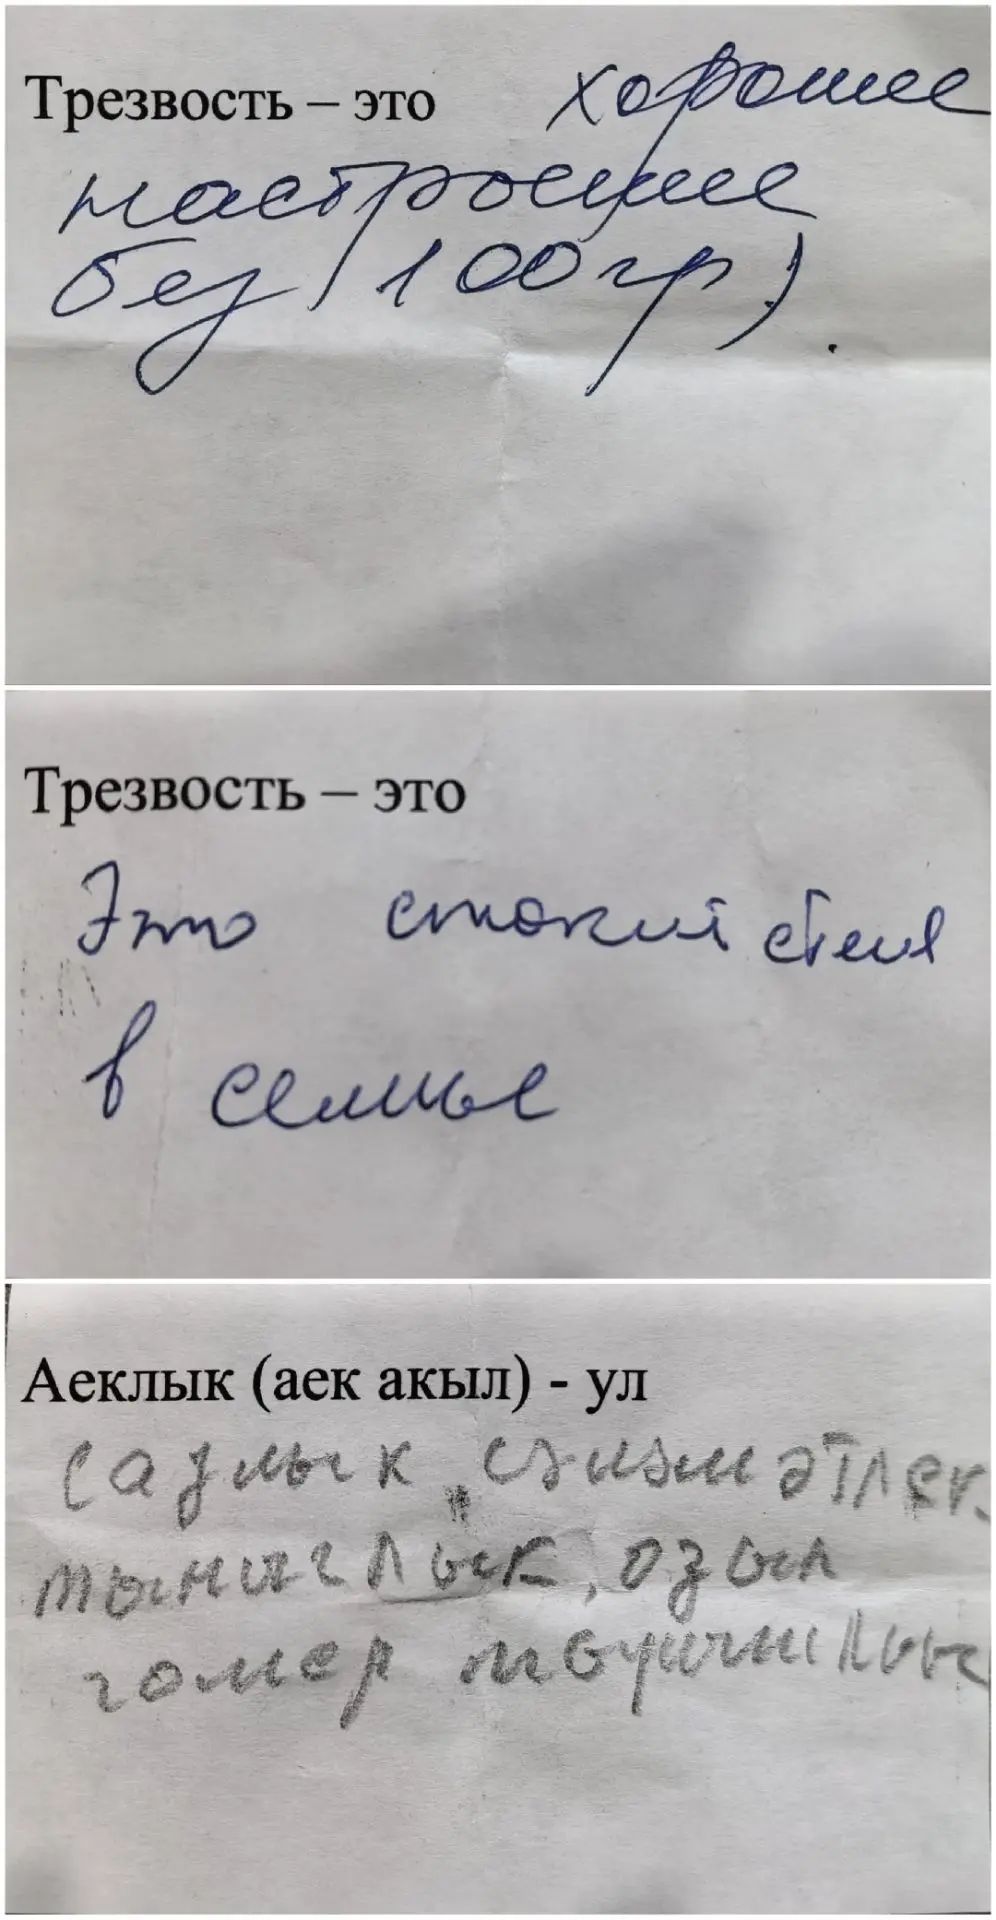 Трезвость – это хорошее
настроение
без (100гр).
Трезвость – это
Это спокийствия
в семье
Аеклык (аек акыл) - ул
саулык, сәламәтлек
тынычлык, озын
гомер